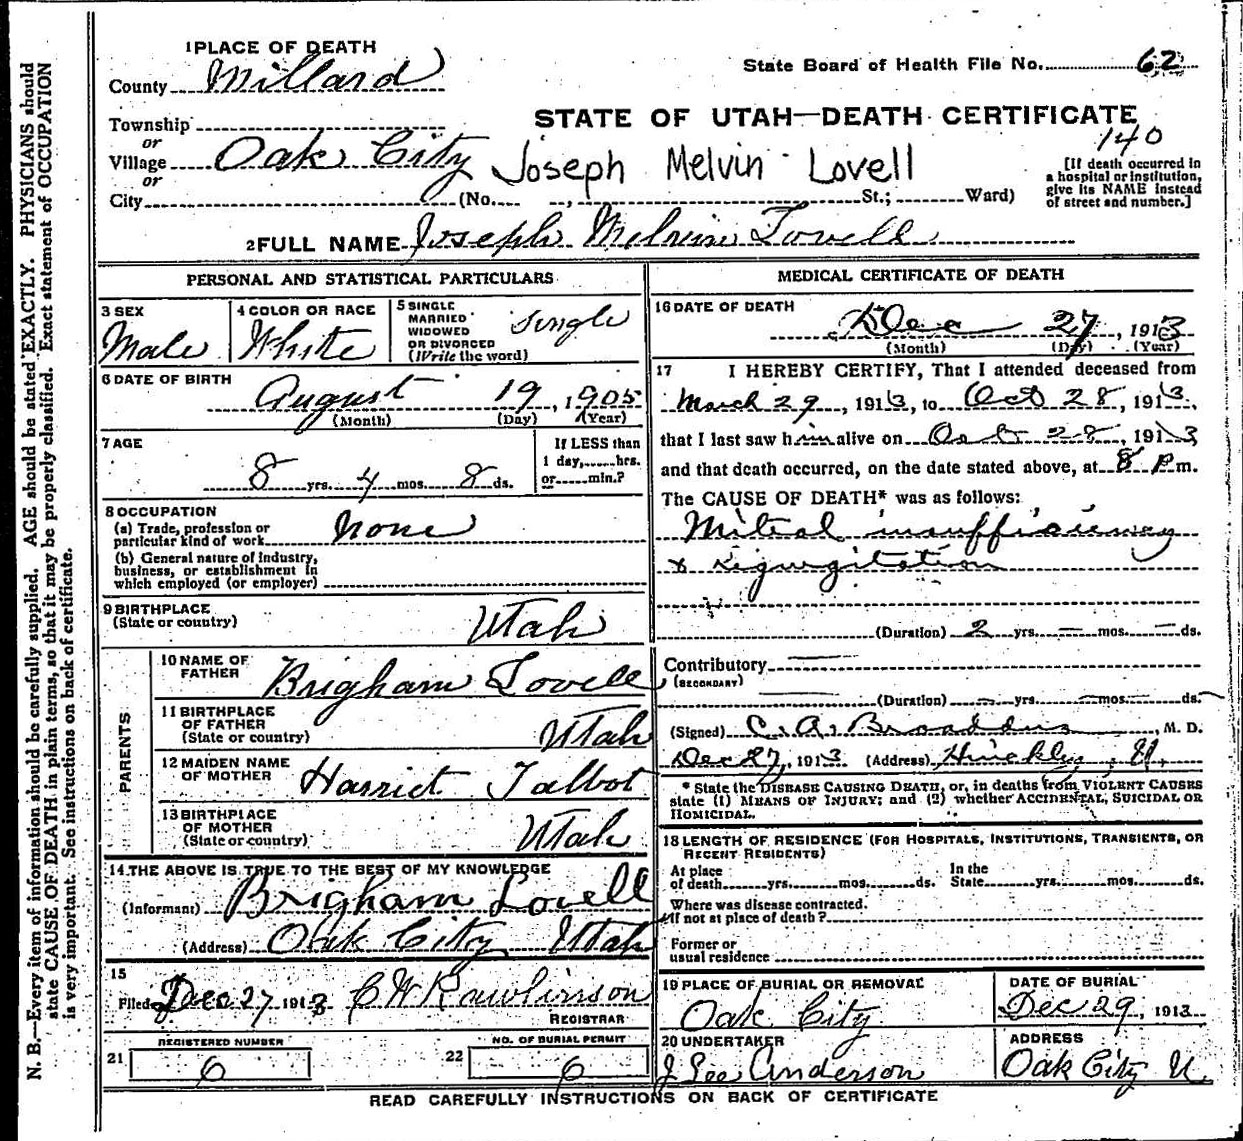 1 PLACE OF DEATH
County Millard
State Board of Health File No. 62
STATE OF UTAH—DEATH CERTIFICATE
140
Township
or
Village Oak City
Joseph Melvin Lovell
or
City (No. , St.; Ward)
[If death occurred in
a hospital or institution,
give its NAME instead
of street and number.]
2 FULL NAME Joseph Melvin Lovell
PERSONAL AND STATISTICAL PARTICULARS
3 SEX
Male
4 COLOR OR RACE
White
5 SINGLE
MARRIED
WIDOWED
OR DIVORCED
(Write the word)
Single
6 DATE OF BIRTH
August 19, 1905
(Month) (Day) (Year)
7 AGE
8 yrs. 4 mos. 8 ds.
If LESS than
1 day, hrs.
or min.?
8 OCCUPATION
(a) Trade, profession or
particular kind of work none
(b) General nature of industry,
business, or establishment in
which employed (or employer)
9 BIRTHPLACE
(State or country)
Utah
PARENTS
10 NAME OF
FATHER
Brigham Lovell
11 BIRTHPLACE
OF FATHER
(State or country)
Utah
12 MAIDEN NAME
OF MOTHER
Harriet Talbot
13 BIRTHPLACE
OF MOTHER
(State or country)
Utah
14 THE ABOVE IS TRUE TO THE BEST OF MY KNOWLEDGE
(Informant) Brigham Lovell
(Address) Oak City Utah
15
Filed Dec 27 1913 C W Rawlinson
REGISTRAR
REGISTERED NUMBER
21 6
NO. OF BURIAL PERMIT
22 6
MEDICAL CERTIFICATE OF DEATH
16 DATE OF DEATH
Dec 27, 1913
(Month) (Day) (Year)
17 I HEREBY CERTIFY, That I attended deceased from
March 29, 1913, to Oct 28, 1913,
that I last saw him alive on Oct 28, 1913
and that death occurred, on the date stated above, at 8 p m.
The CAUSE OF DEATH* was as follows:
Mitral insufficiency
& rigurgitation
(Duration) 2 yrs. — mos. — ds.
Contributory —
(SECONDARY)
(Duration) — yrs. — mos. — ds.
(Signed) C. A. Broaddus, M. D.
Dec 27, 1913. (Address) Hinckley, U.
* State the DISEASE CAUSING DEATH, or, in deaths from VIOLENT CAUSES
state (1) MEANS OF INJURY; and (2) whether ACCIDENTAL, SUICIDAL OR
HOMICIDAL.
18 LENGTH OF RESIDENCE (FOR HOSPITALS, INSTITUTIONS, TRANSIENTS, OR
RECENT RESIDENTS)
At place
of death yrs. mos. ds.
In the
State yrs. mos. ds.
Where was disease contracted.
If not at place of death?
Former or
usual residence
19 PLACE OF BURIAL OR REMOVAL
Oak City
DATE OF BURIAL
Dec 29, 1913
20 UNDERTAKER
J Lee Anderson
ADDRESS
Oak City U
READ CAREFULLY INSTRUCTIONS ON BACK OF CERTIFICATE
N. B.—Every item of information should be carefully supplied. AGE should be stated EXACTLY. PHYSICIANS should
state CAUSE OF DEATH in plain terms, so that it may be properly classified. Exact statement of OCCUPATION
is very important. See instructions on back of certificate.